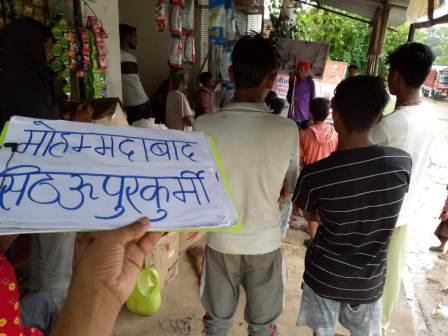 मोहम्मदाबाद
सिठऊपुरकुर्मी